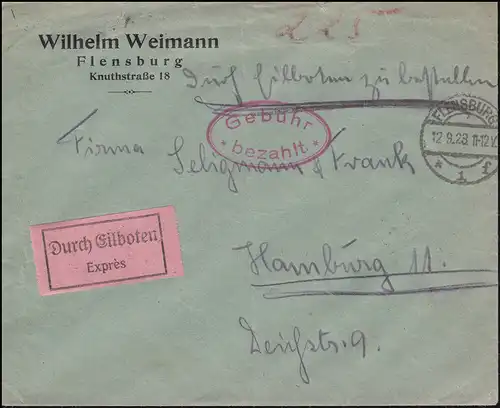 Wilhelm Weimann
Flensburg
Knuthstraße 18
Durch Eilboten zu bestellen
Gebühr
* bezahlt *
FLENSBURG
12.9.23.11-12V.
* 1 f
Firma Seligmann & Frank
Durch Eilboten
Exprès
Hamburg 11.
Deichstr. 9.